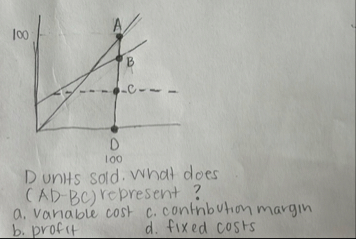 A
100
B
C
D
100
D units sold. What does
(AD-BC) represent ?
a. variable cost c. contribution margin
b. profit d. fixed costs